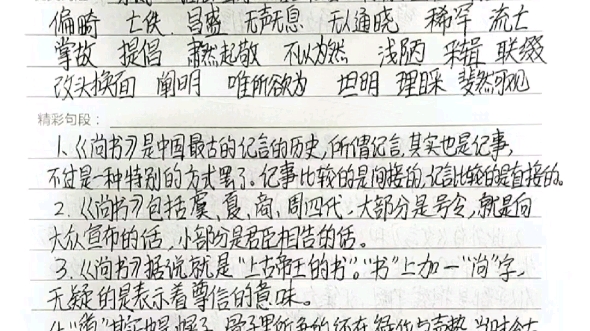 偏畸 亡佚 昌盛 无声无息 无人通晓 稀罕 流亡
掌故 提倡 肃然起敬 不以为然 浅陋 采辑 联缀
改头换面 阐明 唯所欲为 坦明 理睬 斐然可观
精彩句段：
1.《尚书》是中国最古的记言的历史，所谓记言，其实也是记事，
不过是一种特别的方式罢了。记事比较的是间接的，记言比较的是直接的。
2.《尚书》包括虞、夏、商、周四代，大部分是号令，就是向
大众宣布的话，小部分是君臣相告的话。
3.《尚书》据说就是“上古帝王的书”。“书”上加一“尚”字，
无疑的是表示着尊信的意味。